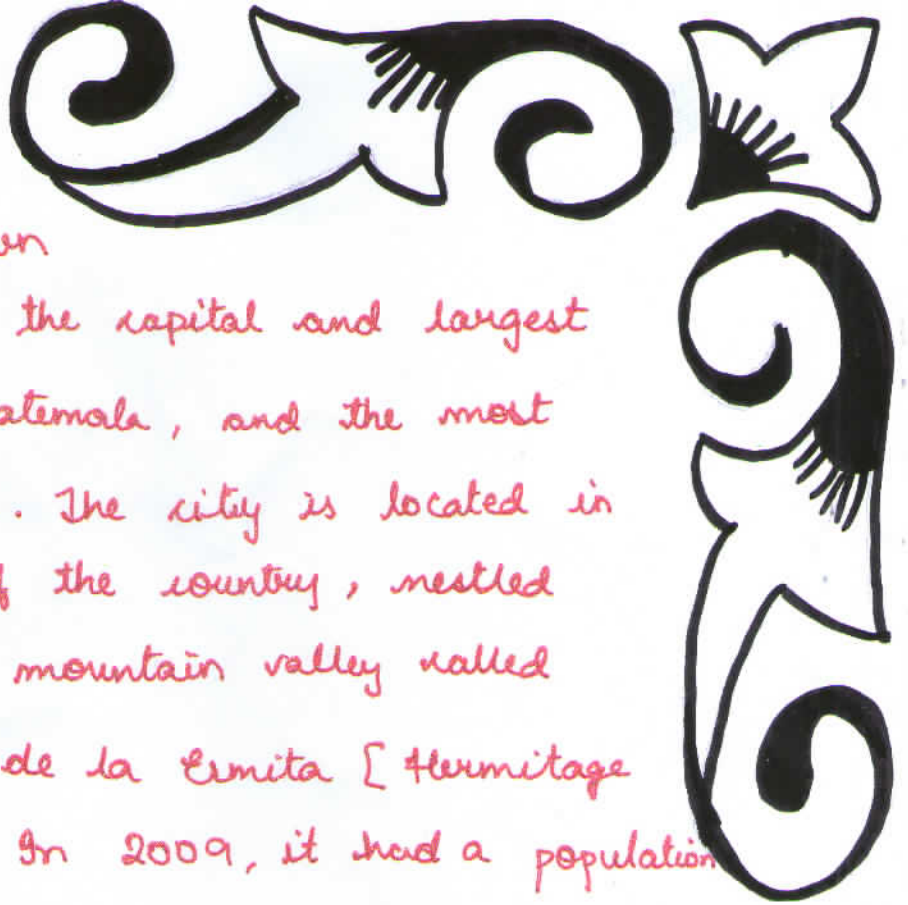 en
the capital and largest
atemala, and the most
. The city is located in
f the country, nestled
mountain valley called
de la Ermita [Hermitage
In 2009, it had a population